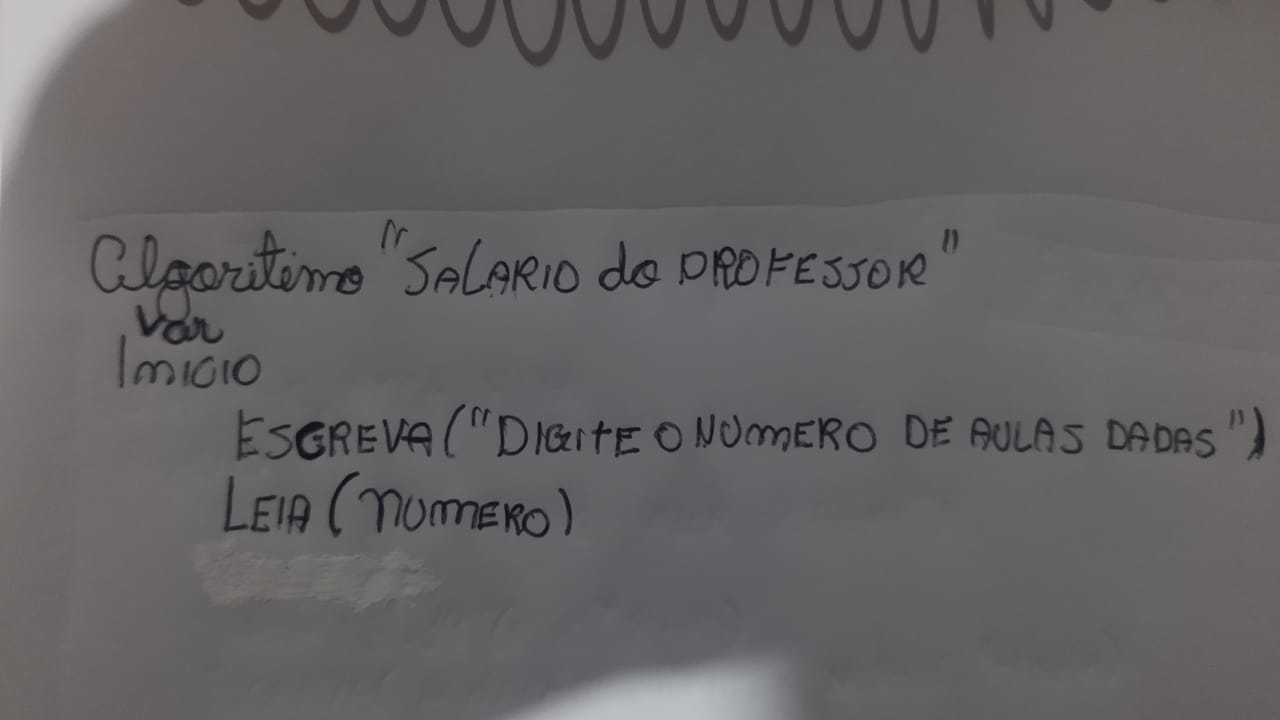 Algoritimo "SALARIO do PROFESSOR"
Var
INICIO
ESCREVA("DIGITE O NUMERO DE AULAS DADAS")
LEIA (NUMERO)